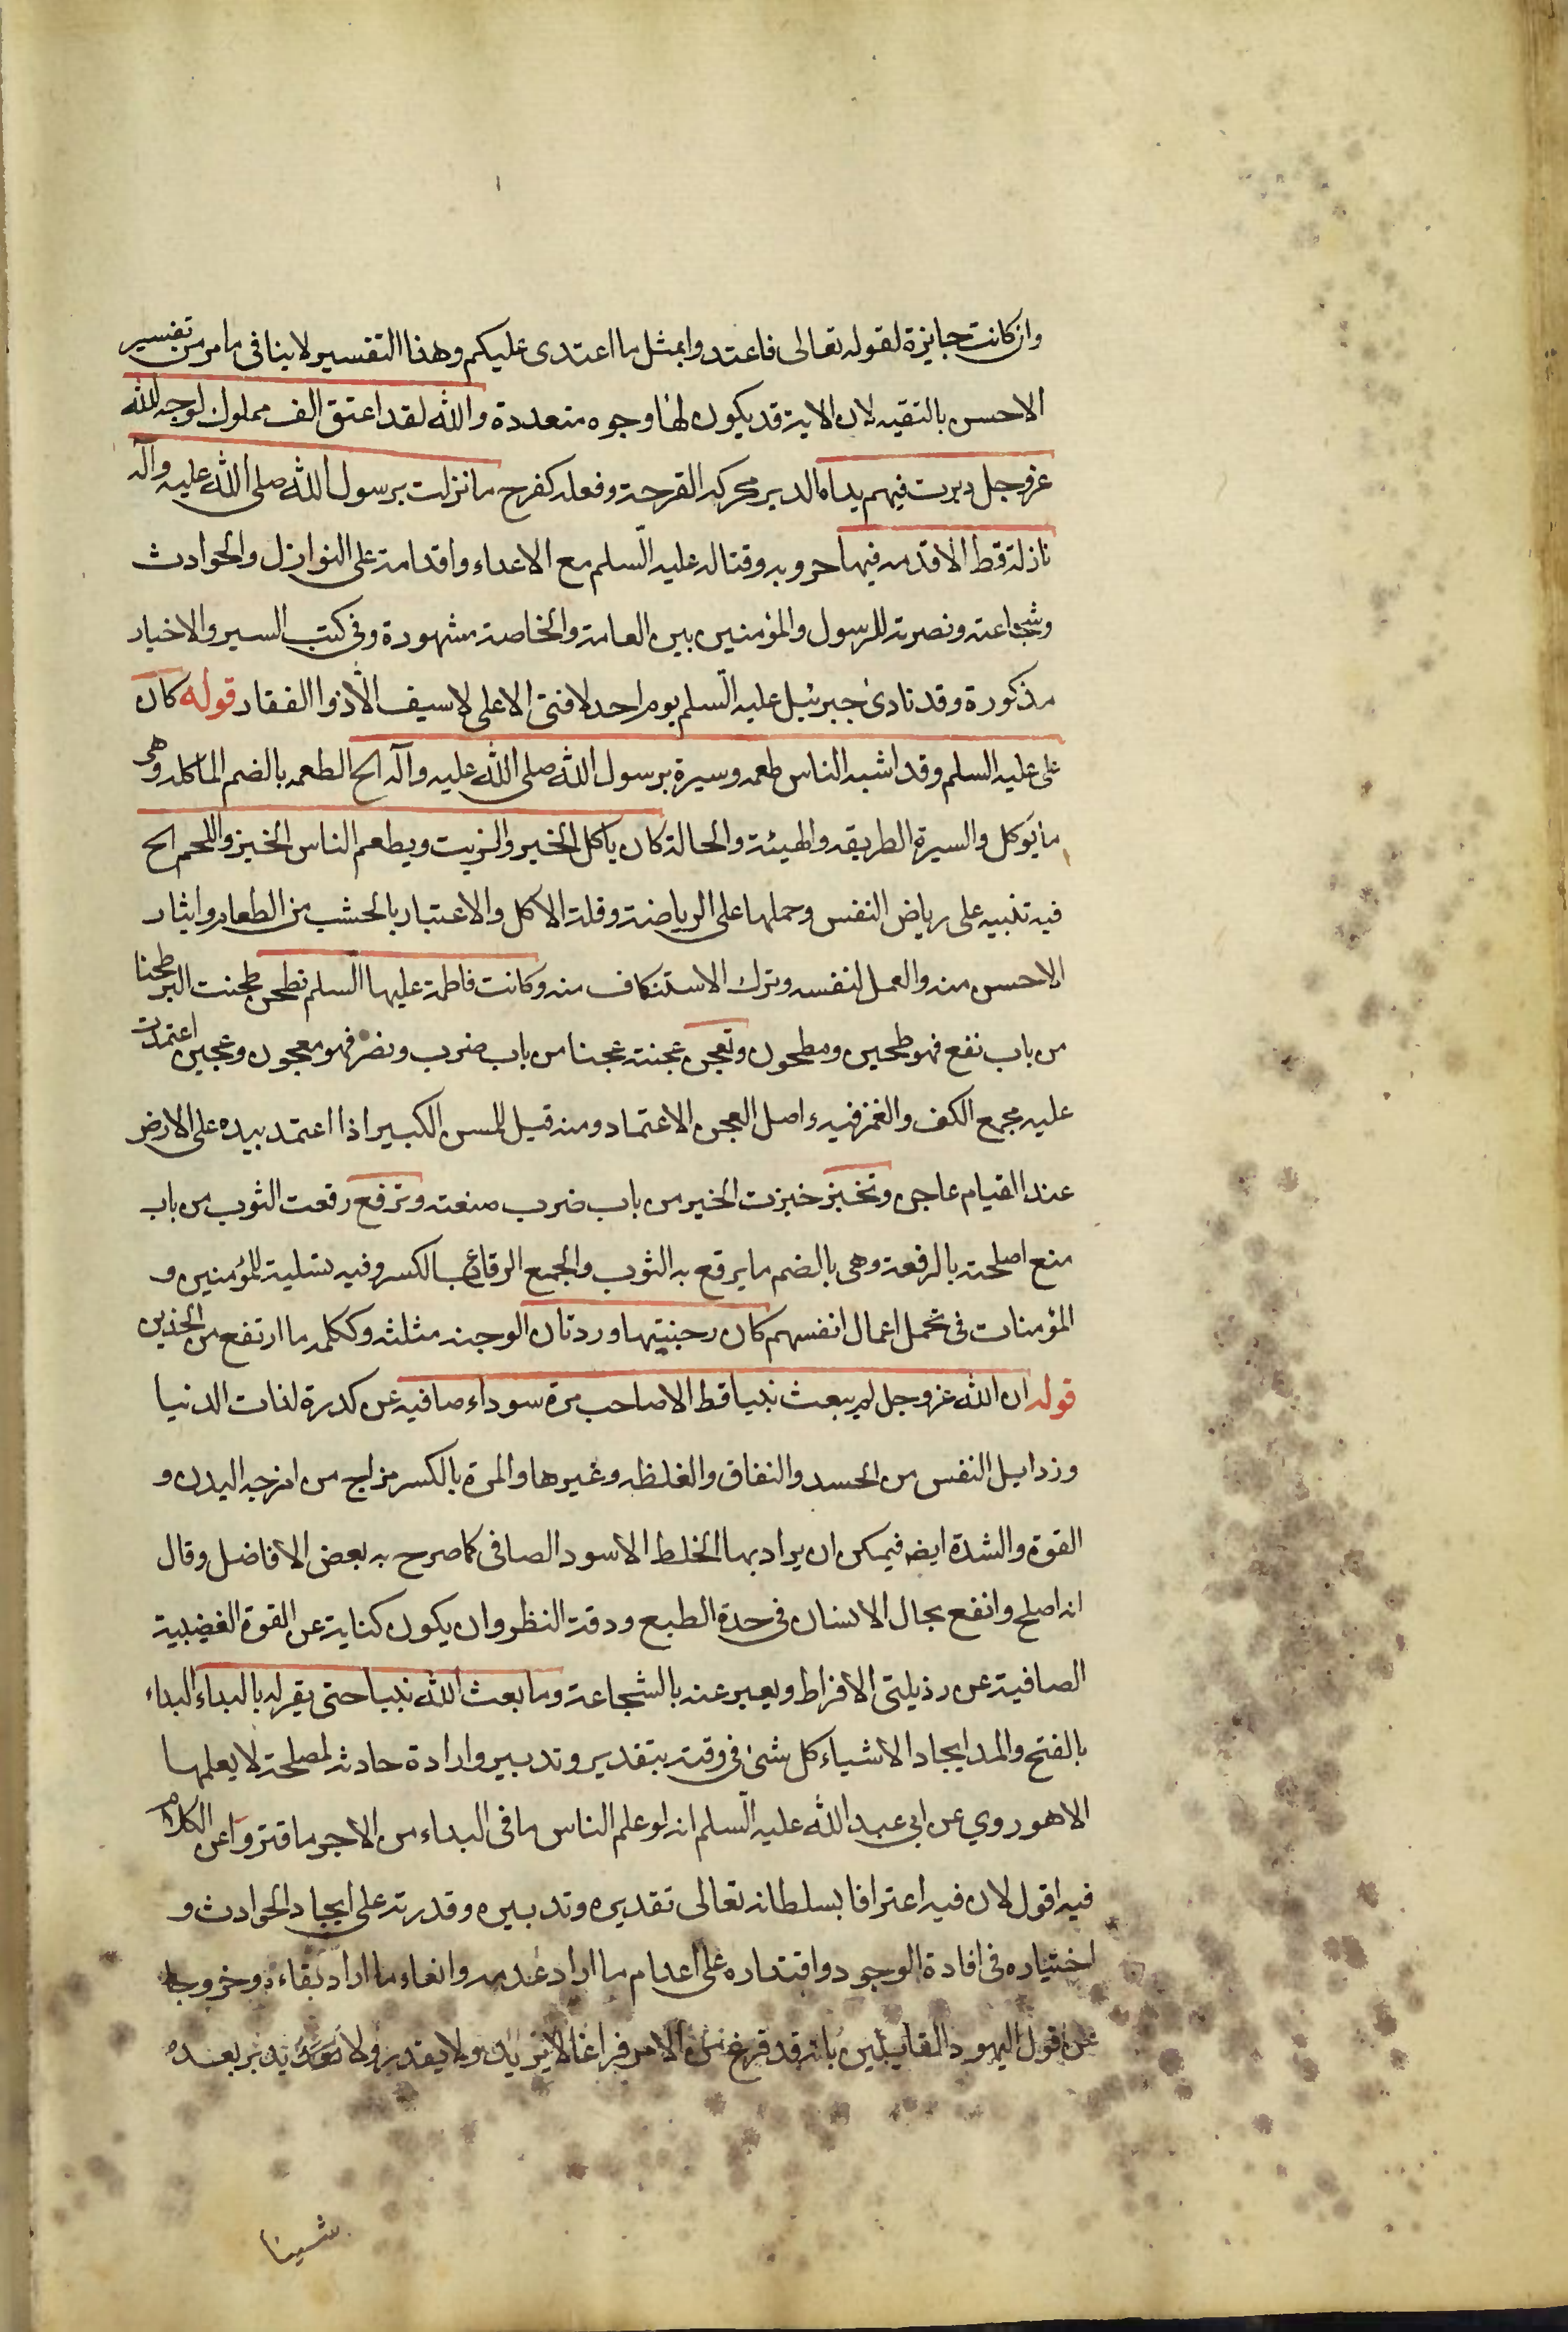 وان كانت جايزة لقوله تعالى فاعتدوا بمثل ما اعتدى عليكم وهذا التفسير لا ينافى ما مر من تفسير
الاحسن بالتقيه لان الاية قد يكون لها وجوه متعددة والله لقد اعتق الف مملوك لوجه الله
عز وجل دبرت فيهم يداه الدبر محركه القرحة وفعله كفرح ما نزلت برسول الله صلى الله عليه وآله
نازلة قط الا قدمه فيها حروبه وقتاله عليه السلم مع الاعداء واقدامه على النوازل والحوادث
وشجاعته ونصرته للرسول والمؤمنين بين العامة والخاصة مشهورة وفى كتب السير والاخبار
مذكورة وقد نادى جبرئيل عليه السلم يوم احد لا فتى الا على لا سيف الا ذوا الفقار قوله كان
على عليه السلم وقد اشبه الناس طعمه وسيرة برسول الله صلى الله عليه وآله الخ الطعمه بالضم الماكله وهى
ما يوكل والسيرة الطريقه والهيئة والحالة كان ياكل الخبز والزيت ويطعم الناس الخبز واللحم الخ
فيه تنبيه على رياض النفس وحملها على الرياضة وقلة الاكل والاعتبار بالخشب من الطعام وايثار
الاحسن منه والعمل لنفسه وترك الاستنكاف منه وكانت فاطمة عليها السلم تطحن طحنت البر طحنا
من باب نفع فهو طحين ومطحون وتعجن عجنته عجنا من باب ضرب ونصر فهو معجون وعجين اعتمدت
عليه مجمع الكف والغمز فيه واصل العجن الاعتماد ومنه قيل للمسن الكبير اذا اعتمد بيده على الارض
عند القيام عاجن وتخبز خبزت الخبز من باب ضرب صنعته وترقع رقعت الثوب من باب
منع اصلحته بالرقعة وهى بالضم ما يرقع به الثوب والجمع الرقاع بالكسر وفيه تسلية للمؤمنين و
المؤمنات فى تحمل اعمال انفسهم كان وجنتيها وردتان الوجنه مثلثه وككلمه ما ارتفع من الخدين
قوله ان الله عز وجل لم يبعث نبيا قط الا صاحب مرة سوداء صافيه عن كدرة لذات الدنيا
ورذايل النفس من الحسد والنفاق والغلظه وغيرها والمرة بالكسر مزاج من امزجه البدن و
القوة والشدة ايضه فيمكن ان يراد بها الخلط الاسود الصافى كما صرح به بعض الافاضل وقال
انه اصلح وانفع بحال الانسان فى حدة الطبع ودقة النظر وان يكون كناية عن القوة الغضبية
الصافية عن رذيلتى الافراط ويعبر عنه بالشجاعة وما بعث الله نبيا حتى يقر له بالبداء البداء
بالفتح والمد ايجاد الاشياء كل شئ فى وقته بتقدير وتدبير وارادة حادثه لمصلحة لا يعلمها
الا هو روي عن ابى عبد الله عليه السلم انه لو علم الناس ما فى البداء من الاجر ما فتروا عن الكلام
فيه اقول لان فيه اعترافا بسلطانه تعالى تقديره وتدبيره وقدرته على ايجاد الحوادث و
اختياره فى افادة الوجود واقتداره على اعدام ما اراد عدمه وابقاء ما اراد بقاءه وخروجا
عن قول اليهود القائلين بانه قد فرغ من الامر فراغا لا يزيد ولا يقدر ولا يدبر بعده
شيئا